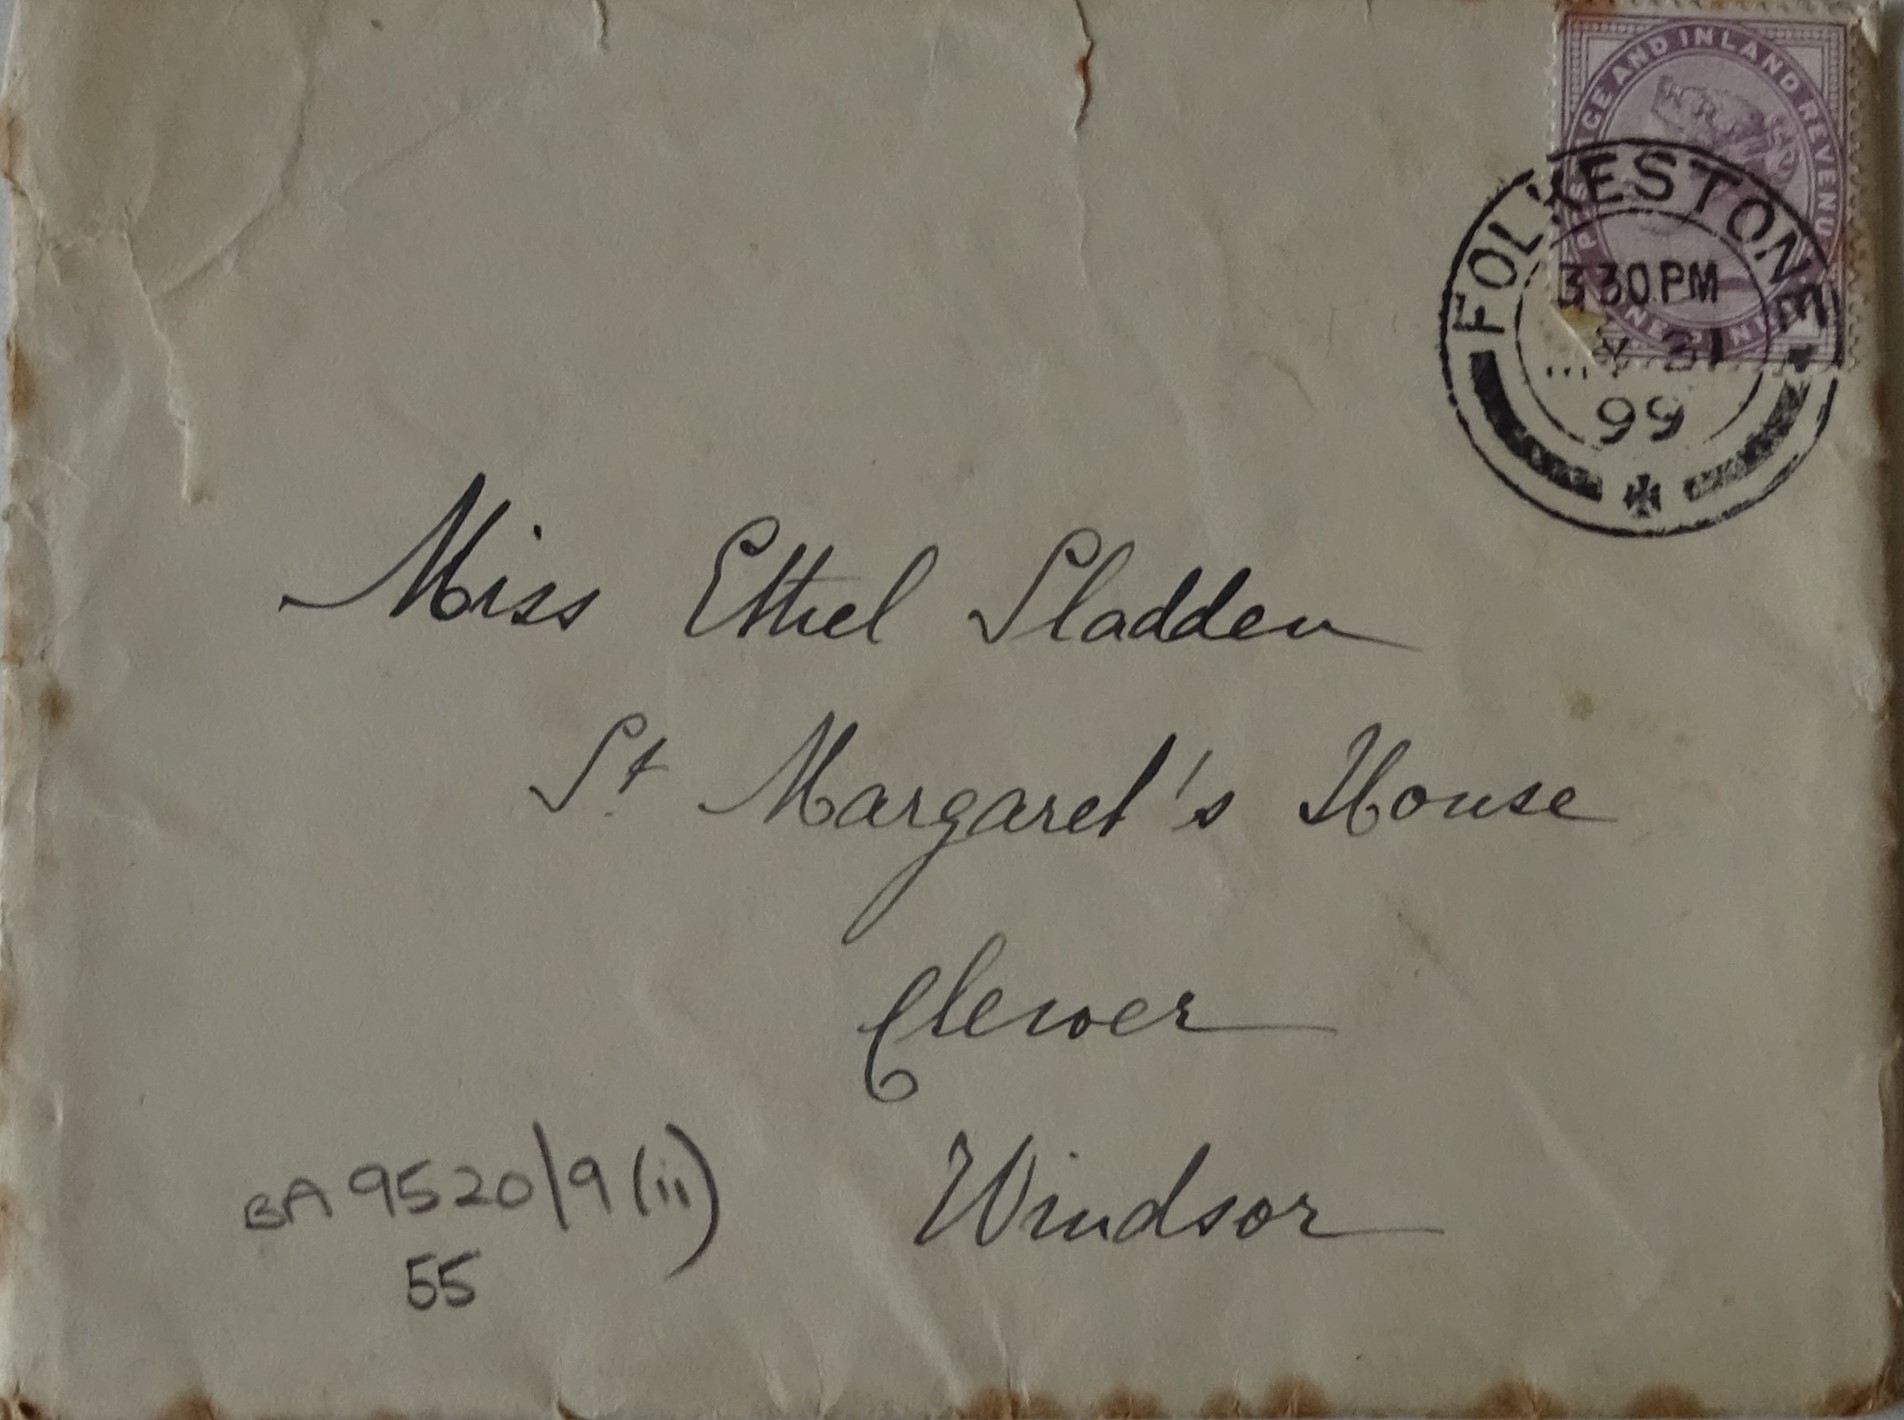 POSTAGE AND INLAND REVENUE
ONE PENNY
FOLKESTONE
3 30 PM
31
99
Miss Ethel Sladden
St. Margaret's House
Clewer
Windsor
BA 9520/9 (ii)
55